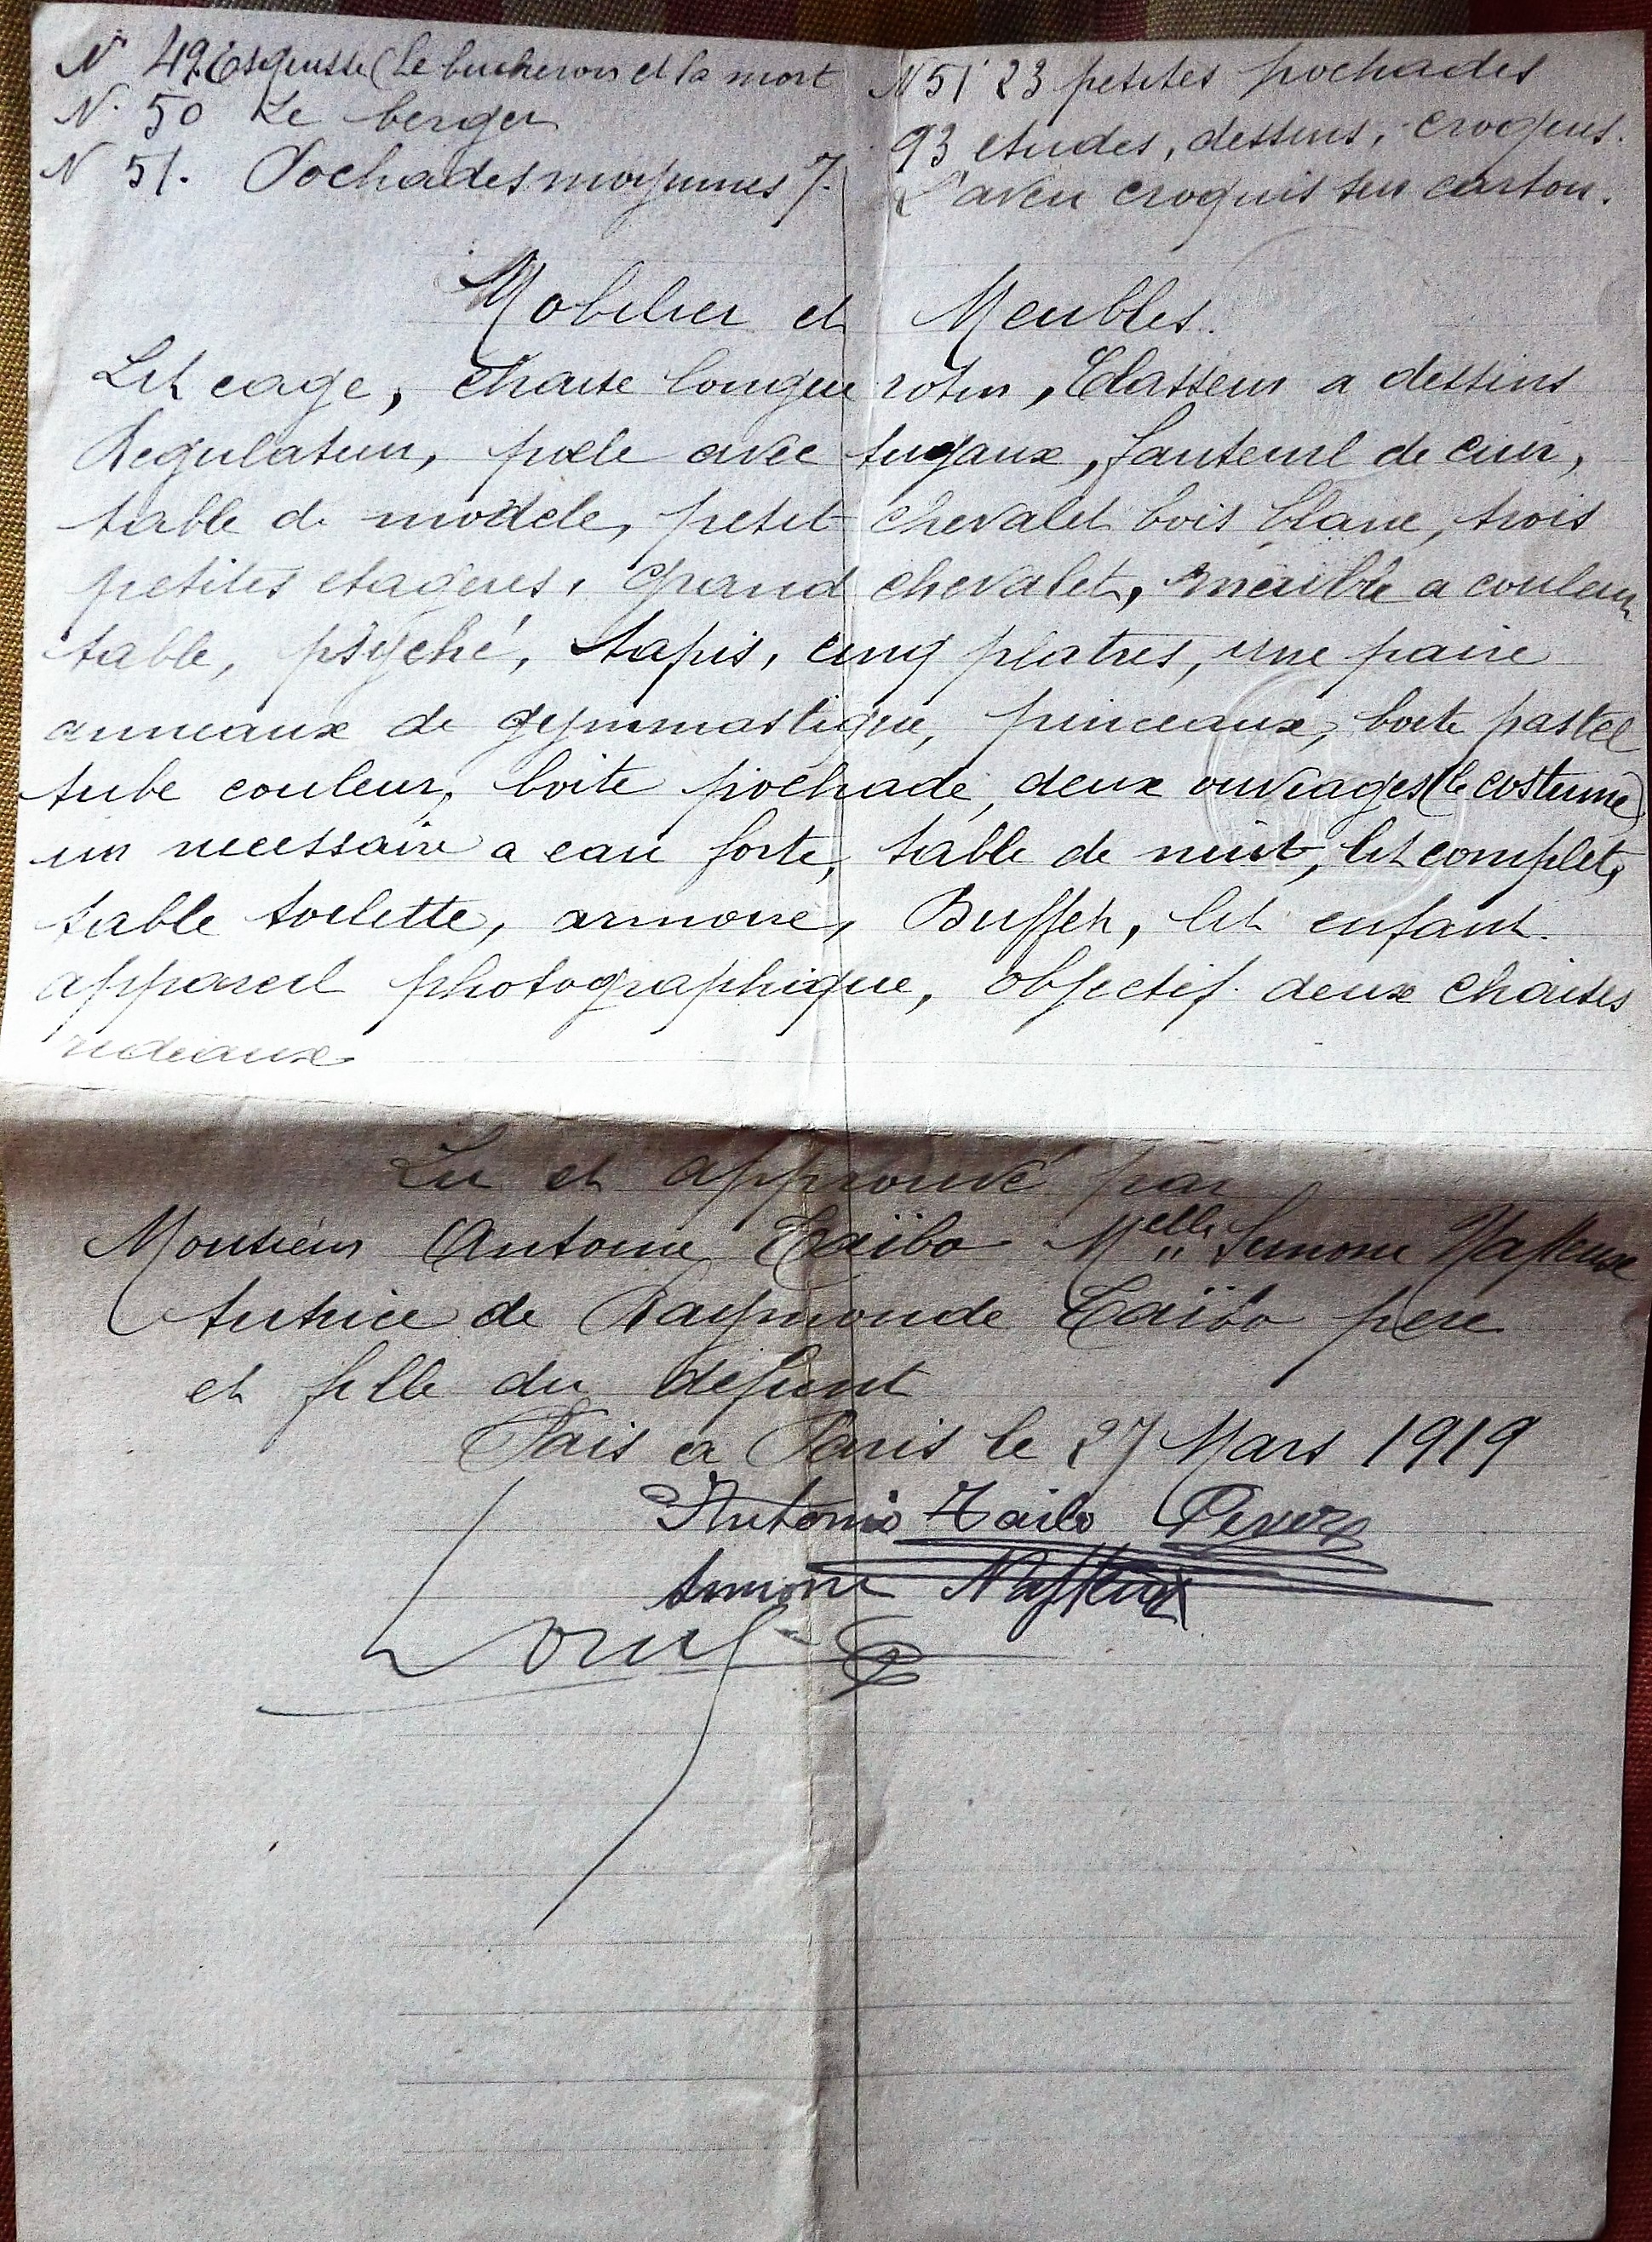 N° 49 Esquisse (Le bucheron et la mort
N. 50 Le berger
N 51. Pochades moyennes 7.
N 51' 23 petites pochades
93 etudes, dessins, croquis.
L'aveu croquis sur carton.
Mobilier et Meubles.
Lit cage, chaise longue rotin, Classeur a dessins
Regulateur, poele avec tuyaux, fauteuil de cuir,
table de modele, petit chevalet bois blanc, trois
petites etageres, grand chevalet, meuble a couleur
table, psyché, tapis, cinq platres, une paire
anneaux de gymnastique, pinceaux, boite pastel
tube couleur, boite pochade, deux ouvrages (le costume)
un necessaire a eau forte, table de nuit, lit complet,
table toilette, armoire, Buffet, lit enfant.
appareil photographique, objectif. deux chaises
rideaux
Lu et approuvé par
Monsieur Antoine Taïbo Melle Simone
tutrice de Raymonde Taïbo pere
et fille du defunt
Fais a Paris le 27 Mars 1919
Antonio Taibo
Simone